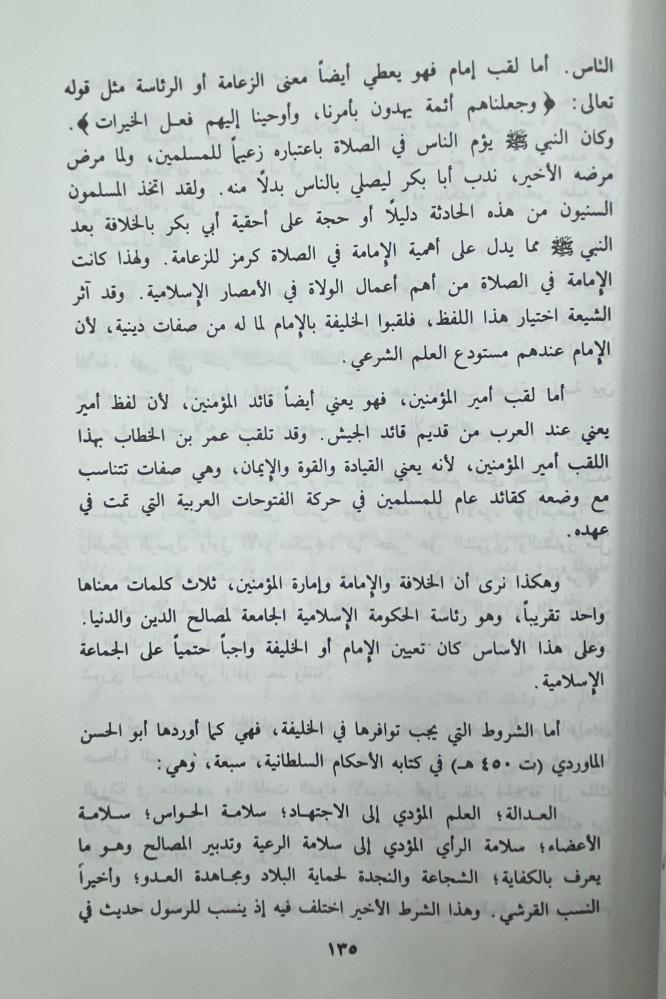 الناس. أما لقب إمام فهو يعطي أيضاً معنى الزعامة أو الرئاسة مثل قوله
تعالى: ﴿وجعلناهم أئمة يهدون بأمرنا، وأوحينا إليهم فعل الخيرات﴾.
وكان النبي ﷺ يؤم الناس في الصلاة باعتباره زعيماً للمسلمين، ولما مرض
مرضه الأخير، ندب أبا بكر ليصلي بالناس بدلاً منه. ولقد اتخذ المسلمون
السنيون من هذه الحادثة دليلاً أو حجة على أحقية أبي بكر بالخلافة بعد
النبي ﷺ مما يدل على أهمية الإمامة في الصلاة كرمز للزعامة. ولهذا كانت
الإمامة في الصلاة من أهم أعمال الولاة في الأمصار الإسلامية. وقد آثر
الشيعة اختيار هذا اللفظ، فلقبوا الخليفة بالإمام لما له من صفات دينية، لأن
الإمام عندهم مستودع العلم الشرعي.
أما لقب أمير المؤمنين، فهو يعني أيضاً قائد المؤمنين، لأن لفظ أمير
يعني عند العرب من قديم قائد الجيش. وقد تلقب عمر بن الخطاب بهذا
اللقب أمير المؤمنين، لأنه يعني القيادة والقوة والإيمان، وهي صفات تتناسب
مع وضعه كقائد عام للمسلمين في حركة الفتوحات العربية التي تمت في
عهده.
وهكذا نرى أن الخلافة والإمامة وإمارة المؤمنين، ثلاث كلمات معناها
واحد تقريباً، وهو رئاسة الحكومة الإسلامية الجامعة لمصالح الدين والدنيا.
وعلى هذا الأساس كان تعيين الإمام أو الخليفة واجباً حتمياً على الجماعة
الإسلامية.
أما الشروط التي يجب توافرها في الخليفة، فهي كما أوردها أبو الحسن
الماوردي (ت ٤٥٠ هـ) في كتابه الأحكام السلطانية، سبعة، وهي:
العدالة؛ العلم المؤدي إلى الاجتهاد؛ سلامة الحواس؛ سلامة
الأعضاء؛ سلامة الرأي المؤدي إلى سلامة الرعية وتدبير المصالح وهو ما
يعرف بالكفاية؛ الشجاعة والنجدة لحماية البلاد ومجاهدة العدو؛ وأخيراً
النسب القرشي. وهذا الشرط الأخير اختلف فيه إذ ينسب للرسول حديث في
١٣٥